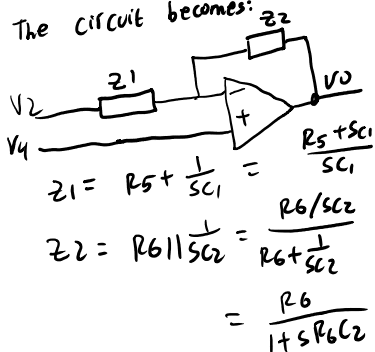 The circuit becomes:
Z2
Z1
V2
V4
-
+
VO
Z1 = R5 + 1/SC1 = R5 + SC1/SC1
Z2 = R6 || 1/SC2 = R6/SC2 / R6 + 1/SC2
= R6 / 1 + SR6C2